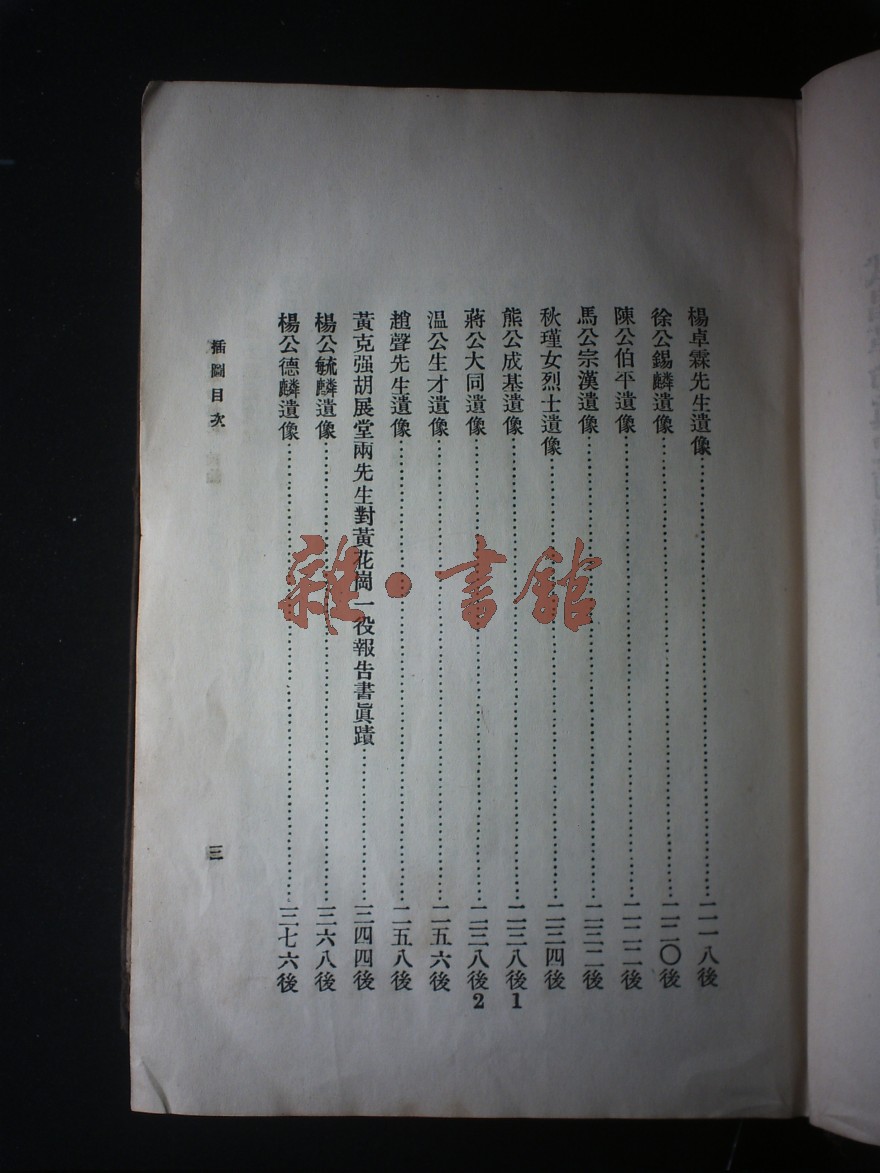 楊卓霖先生遺像……二一八後
徐公錫麟遺像……二二〇後
陳公伯平遺像……二二二後
馬公宗漢遺像……二三二後
秋瑾女烈士遺像……二三四後
熊公成基遺像……二三八後1
蔣公大同遺像……二三八後2
温公生才遺像……二五六後
趙聲先生遺像……二五八後
黃克强胡展堂兩先生對黃花崗一役報告書眞蹟……三四四後
楊公毓麟遺像……三六八後
楊公德麟遺像……三七六後
插圖目次
三
雜·書館